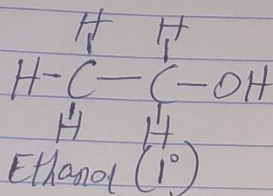 H H
H-C-C-OH
H H
Ethanol (1°)